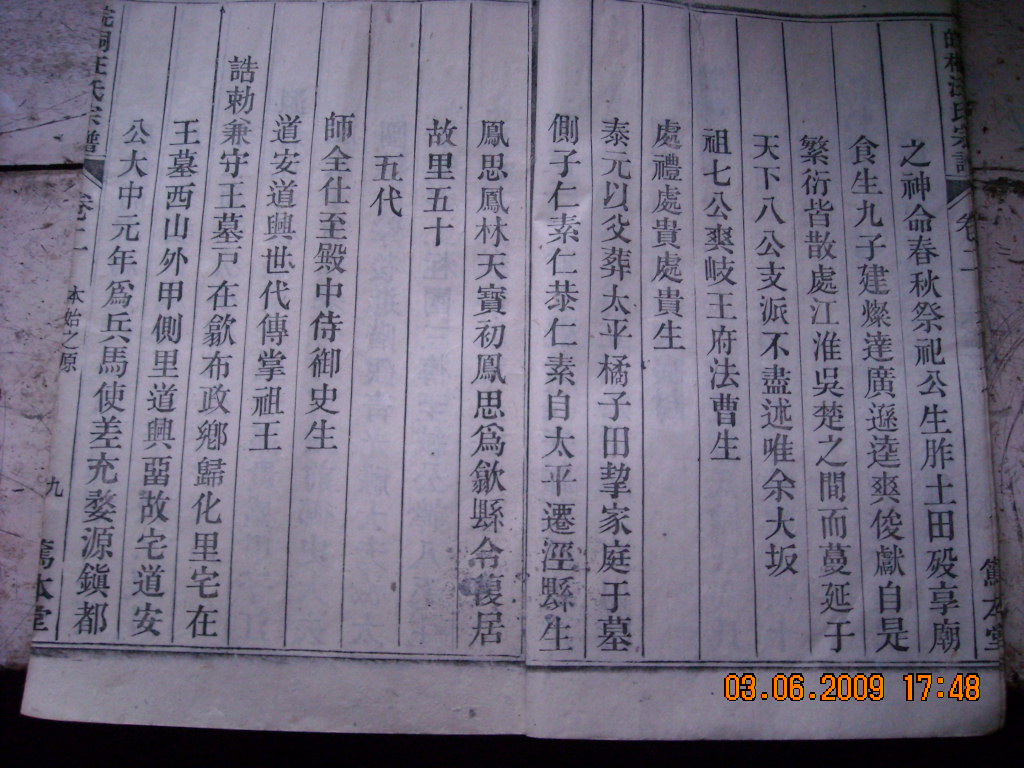 之神命春秋祭祀公生胙土田歿享廟
食生九子建燦達廣遜逵爽俊獻自是
繁衍皆散處江淮吳楚之間而蔓延于
天下八公支派不盡述唯余大坂
祖七公爽岐王府法曹生
處禮處貴處貴生
泰元以父葬太平橘子田挈家庭于墓
側子仁素仁恭仁素自太平遷涇縣生
鳳思鳳林天寶初鳳思為歙縣令復居
故里五十
五代
師全仕至殿中侍御史生
道安道興世代傳掌祖王
誥勅兼守王墓戸在歙布政鄕歸化里宅在
王墓西山外甲側里道興畱故宅道安
公大中元年為兵馬使差充婺源鎭都
汪氏宗譜
卷二
本始之原
九
篤本堂
03.06.2009 17:48